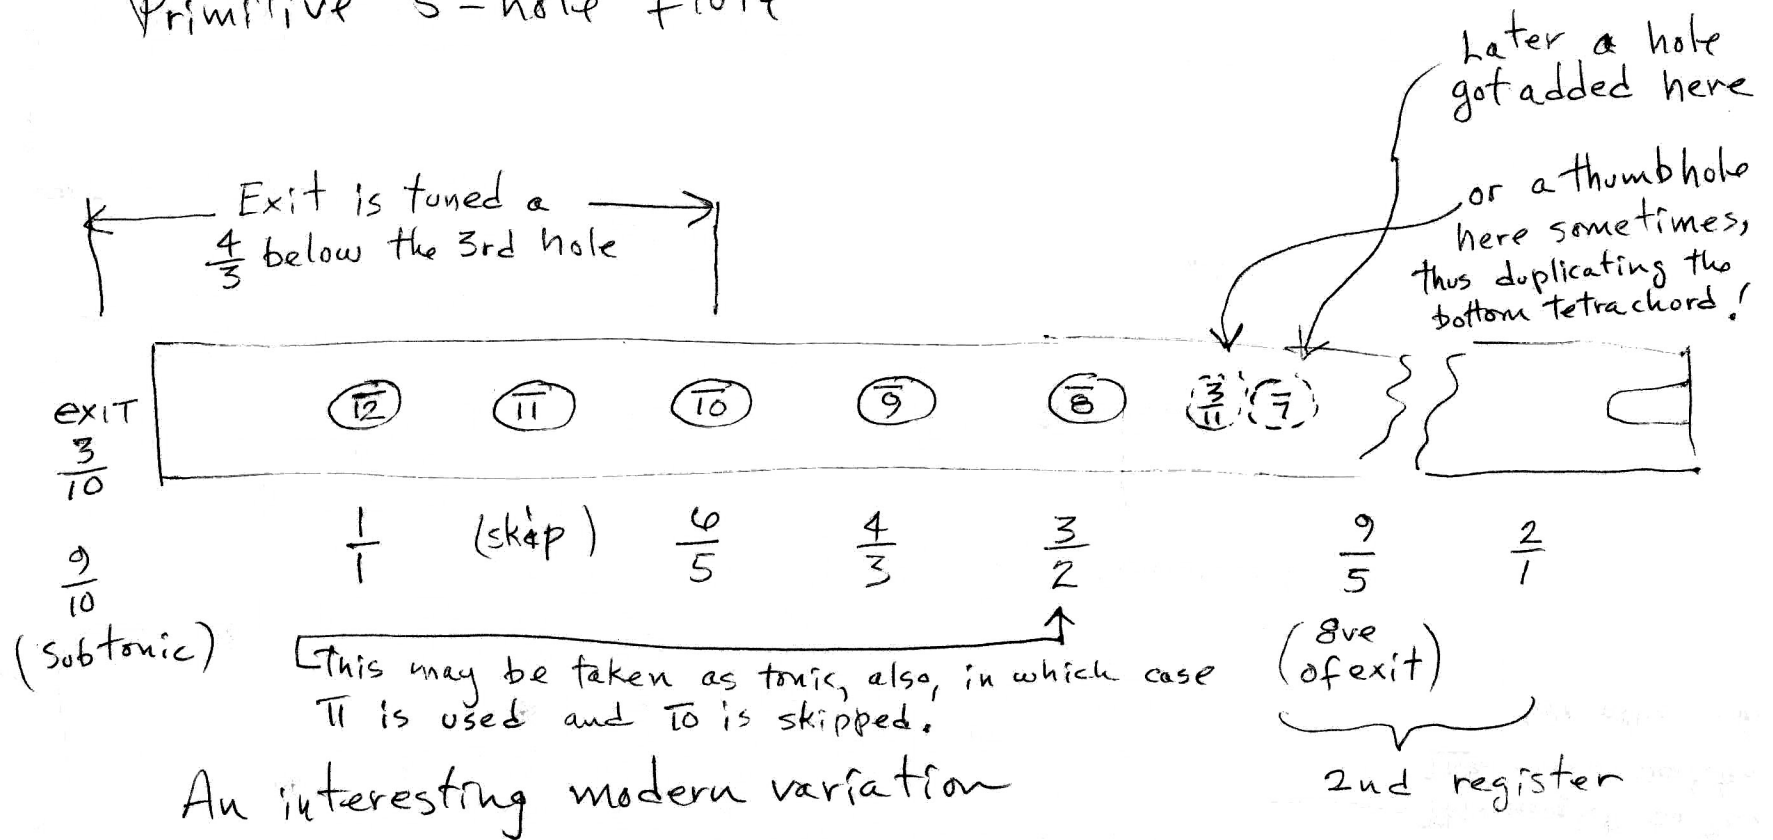 Primitive 5-hole flute
Later a hole
got added here
or a thumbhole
here sometimes,
thus duplicating the
bottom tetrachord!
Exit is tuned a
4/3 below the 3rd hole
exit
3/10
9/10
(subtonic)
12 11 10 9 8 3/11 7
1/1 (skip) 6/5 4/3 3/2 9/5 2/1
This may be taken as tonic, also, in which case
11 is used and 10 is skipped.
(8ve
of exit)
2nd register
An interesting modern variation